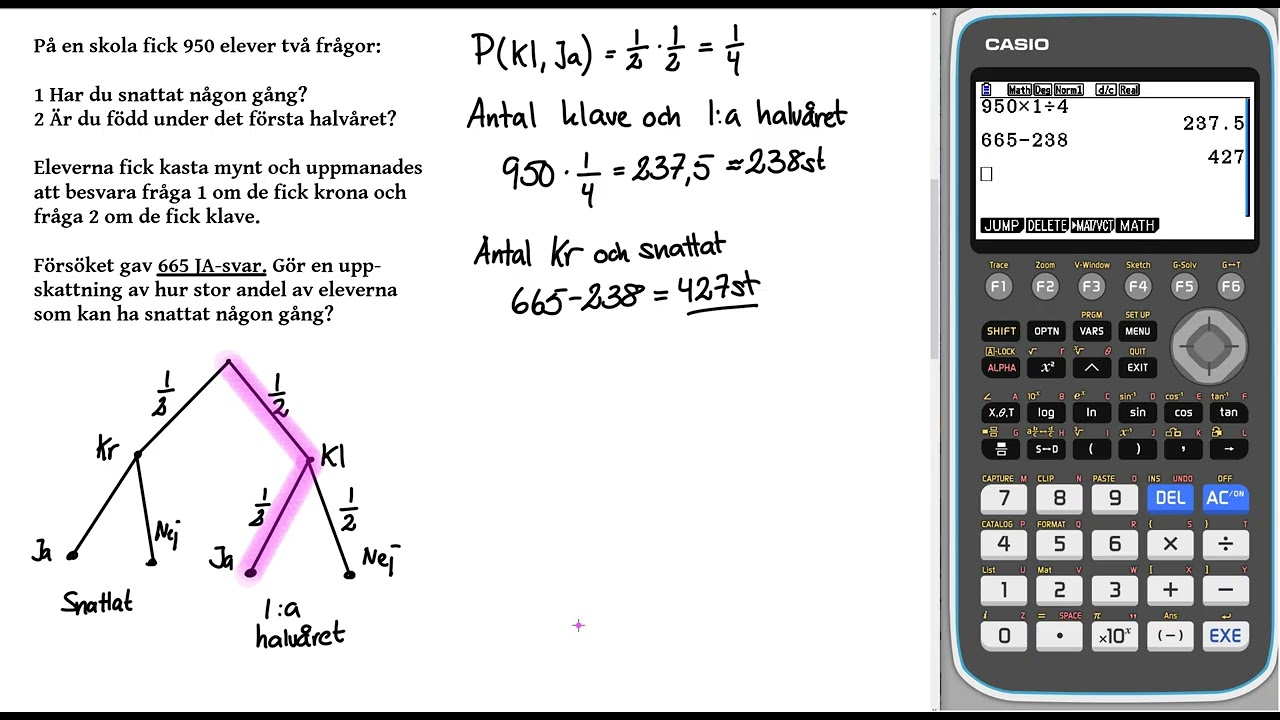 På en skola fick 950 elever två frågor:
1 Har du snattat någon gång?
2 Är du född under det första halvåret?
Eleverna fick kasta mynt och uppmanades
att besvara fråga 1 om de fick krona och
fråga 2 om de fick klave.
Försöket gav 665 JA-svar. Gör en upp-
skattning av hur stor andel av eleverna
som kan ha snattat någon gång?
1/2
1/2
Kr
Kl
1/2
1/2
Ja
Nej
Ja
Nej
Snattat
1:a
halvåret
P(Kl, Ja) = 1/2 · 1/2 = 1/4
Antal klave och 1:a halvåret
950 · 1/4 = 237,5 ≈ 238st
Antal Kr och snattat
665-238 = 427st
CASIO
Math Deg Norm1 d/c Real
950×1÷4
237.5
665-238
427
JUMP DELETE ▶MAT/VCT MATH
Trace Zoom V-Window Sketch G-Solv G↔T
F1 F2 F3 F4 F5 F6
PRGM SET UP
SHIFT OPTN VARS MENU
A-LOCK √ r ∛ θ QUIT
ALPHA x² ^ EXIT
∠ A 10ˣ B eˣ C sin⁻¹ D cos⁻¹ E tan⁻¹ F
X,θ,T log ln sin cos tan
G H I J K L
S↔D ( ) , →
CAPTURE M CLIP N PASTE O INS UNDO OFF
7 8 9 DEL AC/ON
CATALOG P FORMAT Q R { S } T
4 5 6 × ÷
List U Mat V W [ X ] Y
1 2 3 + −
i Z = SPACE π " Ans
0 • ×10ˣ (−) EXE